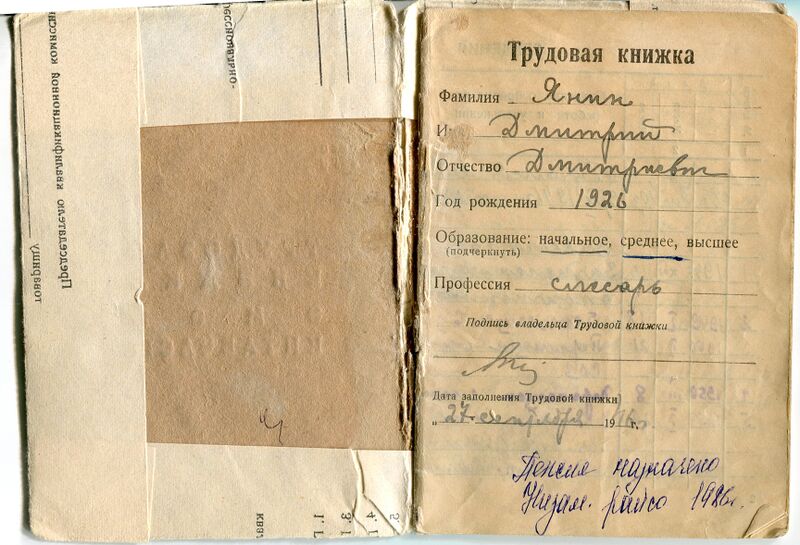 Трудовая книжка
Фамилия Янин
Имя Дмитрий
Отчество Дмитриевич
Год рождения 1926
Образование: начальное, среднее, высшее
(подчеркнуть)
Профессия слесарь
Подпись владельца Трудовой книжки
Дата заполнения Трудовой книжки
„27 сентября 194 г.
Пенсия назначено
Низам. райсо 1986г.
Председателю квалификационной комиссии
товарищу